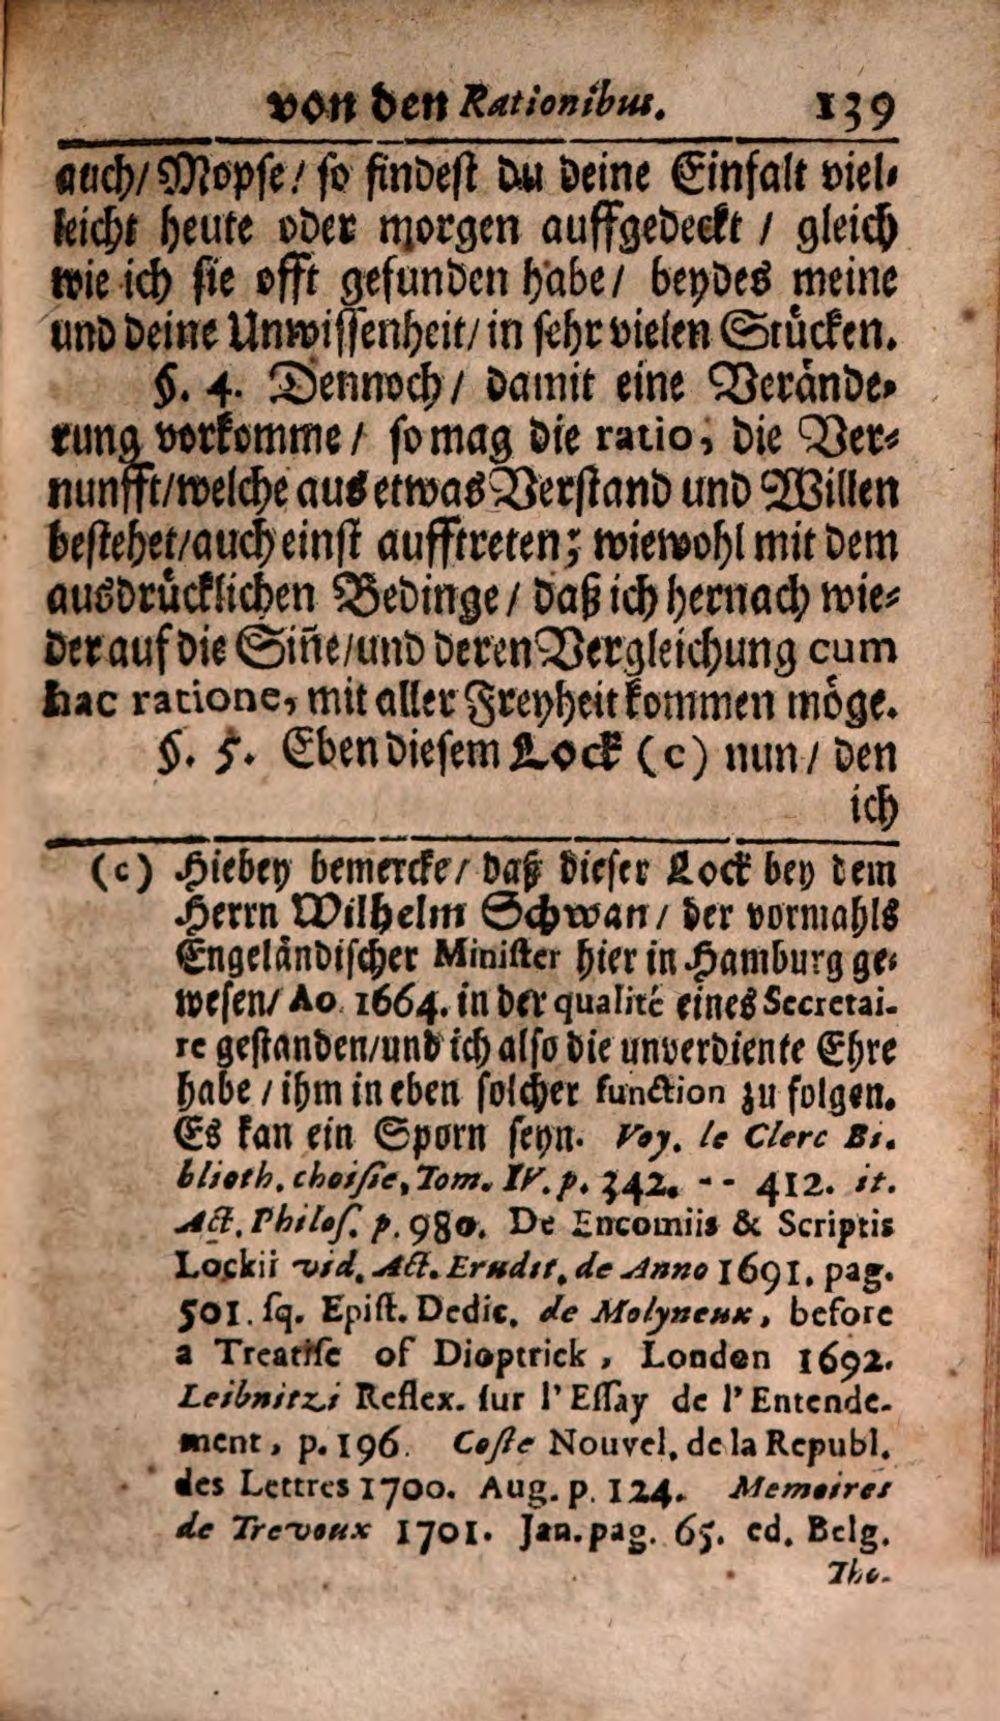 von den Rationibus. 139
auch/ Mopse/ so findest du deine Einfalt viel-
leicht heute oder morgen auffgedeckt / gleich
wie ich sie offt gefunden habe/ beydes meine
und deine Unwissenheit/ in sehr vielen Stücken.
§. 4. Dennoch/ damit eine Verände-
rung vorkomme/ so mag die ratio, die Ver-
nunfft/welche aus etwas Verstand und Willen
bestehet/auch einst aufftreten; wiewohl mit dem
ausdrücklichen Bedinge/ daß ich hernach wie-
der auf die Siñe/und deren Vergleichung cum
hac ratione, mit aller Freyheit kommen möge.
§. 5. Eben diesem Lock (c) nun/ den
ich
(c) Hiebey bemercke/ daß dieser Lock bey dem
Herrn Wilhelm Schwan/ der vormahls
Engeländischer Minister hier in Hamburg ge-
wesen/ Ao. 1664. in der qualité eines Secretai-
re gestanden/und ich also die unverdiente Ehre
habe / ihm in eben solcher function zu folgen.
Es kan ein Sporn seyn. Voy. le Clerc Bi-
blioth. choisie, Tom. IV. p. 342. -- 412. it.
Act. Philos. p. 980. De Encomiis & Scriptis
Lockii vid. Act. Erudit. de Anno 1691. pag.
501. sq. Epist. Dedic. de Molyneux, before
a Treatise of Dioptrick, London 1692.
Leibnitzi Reflex. sur l'Essay de l'Entende-
ment, p. 196. Coste Nouvel. de la Republ.
des Lettres 1700. Aug. p. 124. Memoires
de Trevoux 1701. Jan. pag. 65. ed. Belg.
Tho-